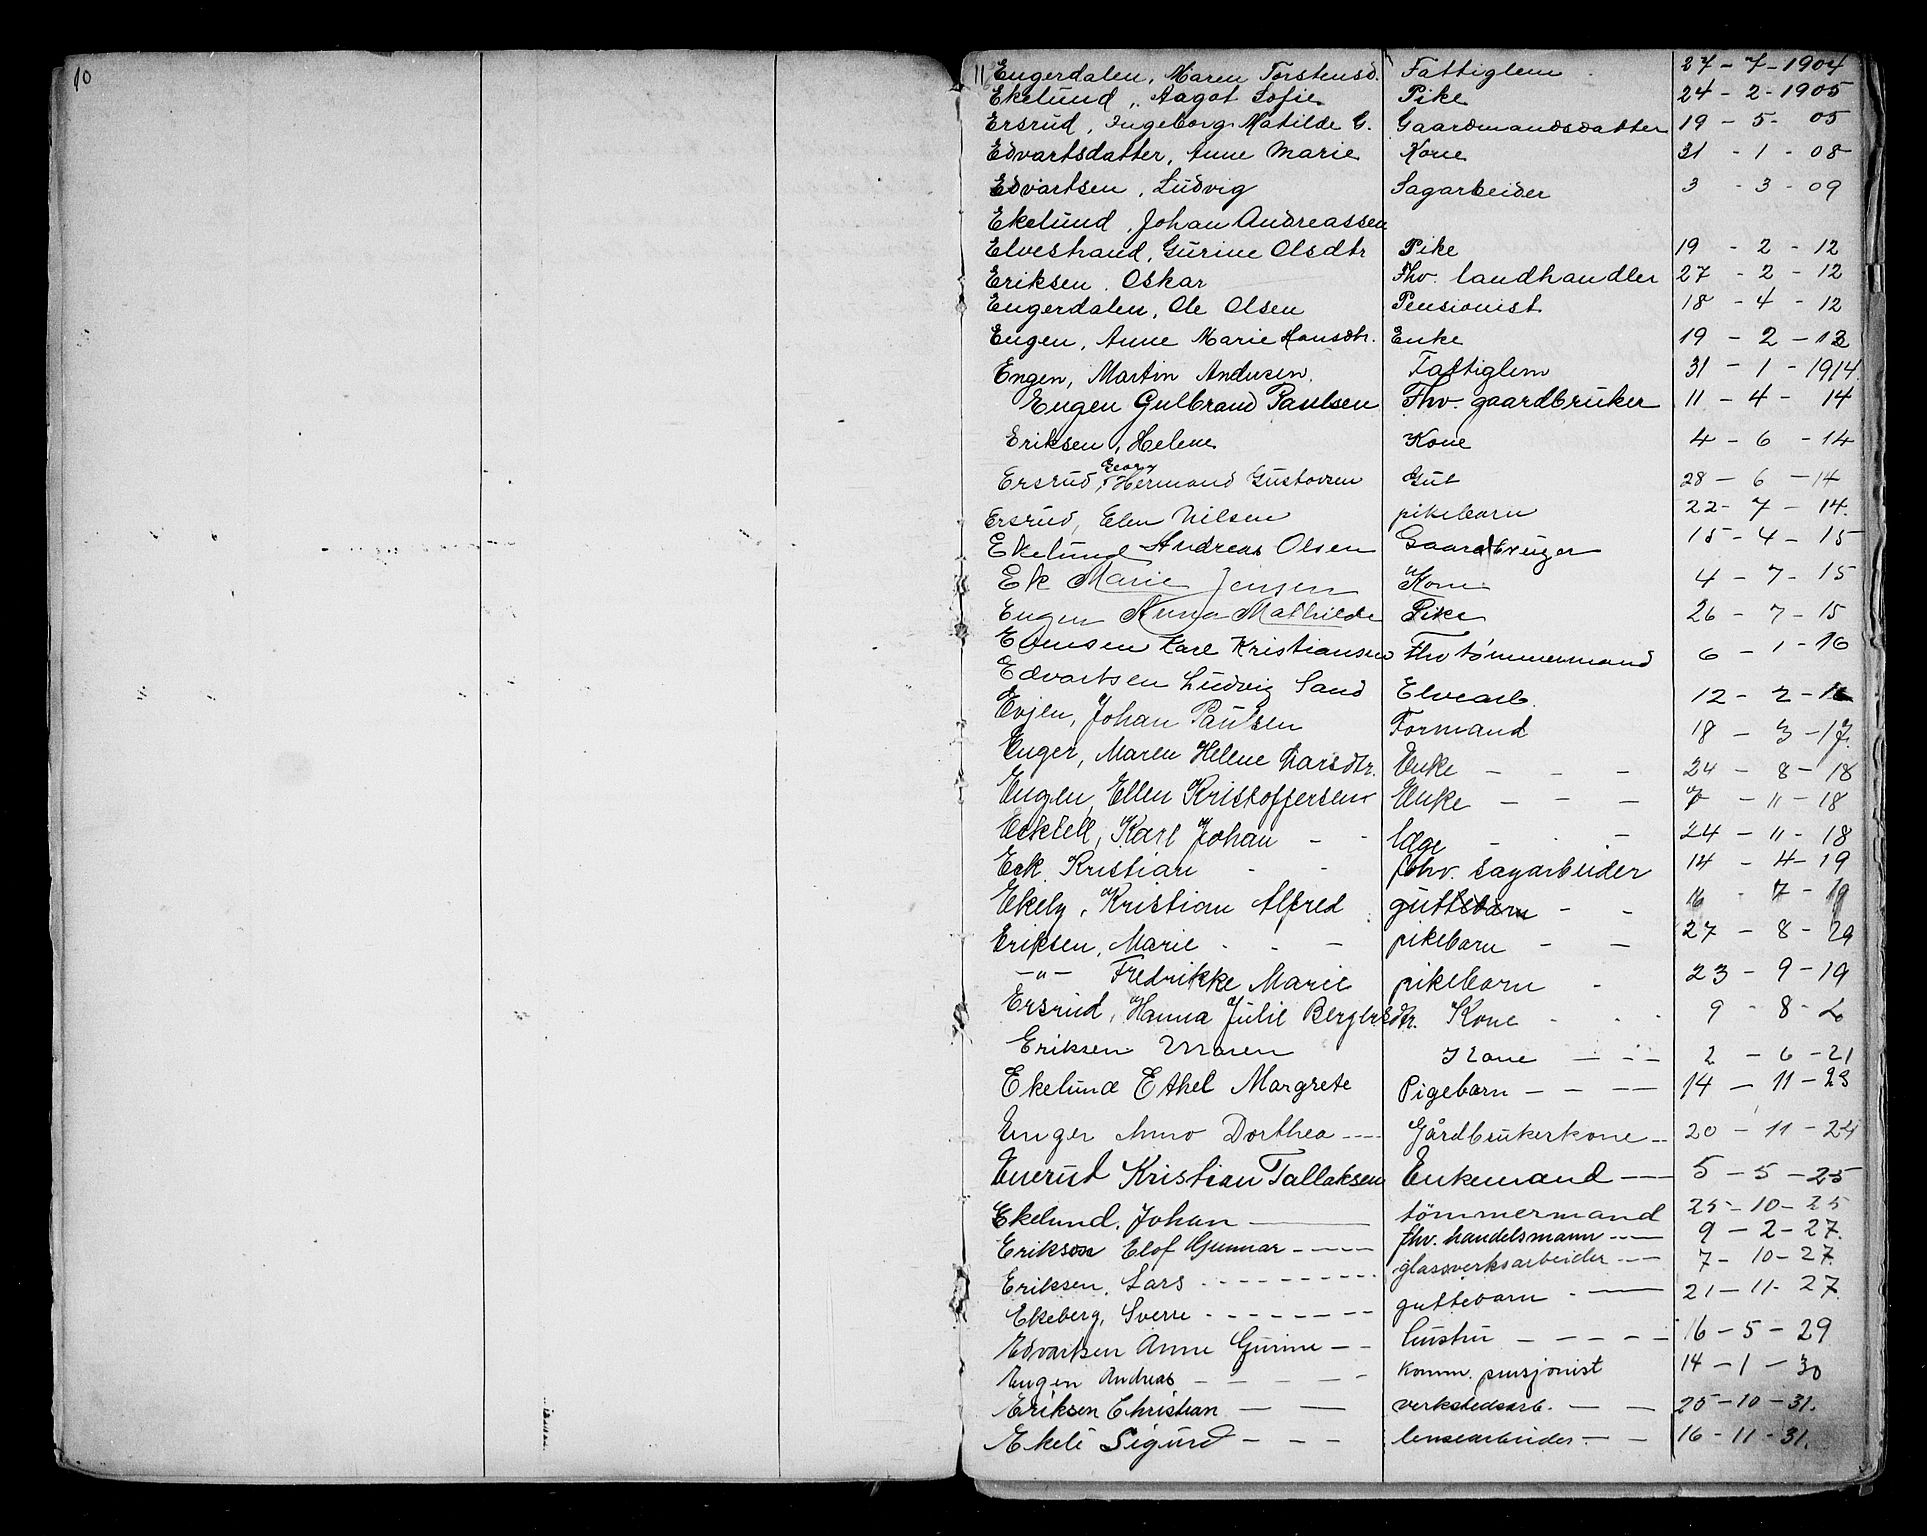 10
11
Engerdalen, Maren Torstensd. Fattiglem 27 - 7 - 1904
Ekelund, Aagot Sofie Pike 24 - 2 - 1905
Ersrud, Ingeborg Matilde G. Gaardmandsdatter 19 - 5 - 05
Edvartsdatter, Anne Marie Kone 31 - 1 - 08
Edvartsen, Ludvig Sagarbeider 3 - 3 - 09
Ekelund, Johan Andreassen
Elvestrand, Gurine Olsdtr Pike 19 - 2 - 12
Eriksen. Oskar Fhv. landhandler 27 - 2 - 12
Engerdalen, Ole Olsen Pensionist 18 - 4 - 12
Engen, Anne Marie Hansdtr. Enke 19 - 2 - 13
Engen, Martin Andersen. Fattiglem 31 - 1 - 1914
Engen Gulbrand Paulsen Fhv. gaardbruker 11 - 4 - 14
Eriksen, Helene Kone 4 - 6 - 14
Ersrud, Georg Hermand Gustavsen Gut 28 - 6 - 14
Ersrud, Elen Nilsen pikebarn 22 - 7 - 14.
Ekelund Andreas Olsen Gaardbruger 15 - 4 - 15
Ek Marie Jensen Kone 4 - 7 - 15
Engen Anna Mathilde Pike 26 - 7 - 15
Evensen Karl Kristiansen Fhv tømmermand 6 - 1 - 16
Edvartsen Ludvig Sand Elvearb. 12 - 2 -
Evjen, Johan Paulsen Formand 18 - 3 - 17.
Enger, Maren Helene Larsdtr. Enke - - - 24 - 8 - 18
Engen, Ellen Kristoffersen Enke - - - 7 - 11 - 18
Karl Johan - - Læge - - - 24 - 11 - 18
Eek. Kristian - - fhv. sagarbeider 14 - 4 - 19
Ekely, Kristian Alfred guttebarn - - 16 - 7 - 19
Eriksen, Marie - - - pikebarn - - 27 - 8 - 19
-"- Fredrikke Marie pikebarn - 23 - 9 - 19
Ersrud, Hanna Julie Bergersdtr. Kone - - - 9 - 8 - 20
Eriksen Maren Kone - - - 2 - 6 - 21
Ekelund Ethel Margrete Pigebarn - - - - 14 - 11 - 23
Enger Anna Dorthea ---- Gårdbrukerkone -- 20 - 11 - 24
Enerud Kristian Tallaksen Enkemand --- 5 - 5 - 25
Ekelund, Johan ——— tømmermand 25 - 10 - 25
Eriksson Elof Gunnar ---- fhv. handelsmann --- 9 - 2 - 27.
Eriksen, Lars --------- glassverksarbeider --- 7 - 10 - 27.
Ekeberg, Sverre ------- guttebarn - —— 21 - 11 - 27.
Edvartsen Anne Gurine -- hustru - - - - - 16 - 5 - 29
Engen Andreas - - - - - komm. pensjonist 14 - 1 - 30
Eriksen Christian - — verkstedsarb. - - 25 - 10 - 31.
Ekeli Sigurd - - - lensearbeider - - 16 - 11 - 31.